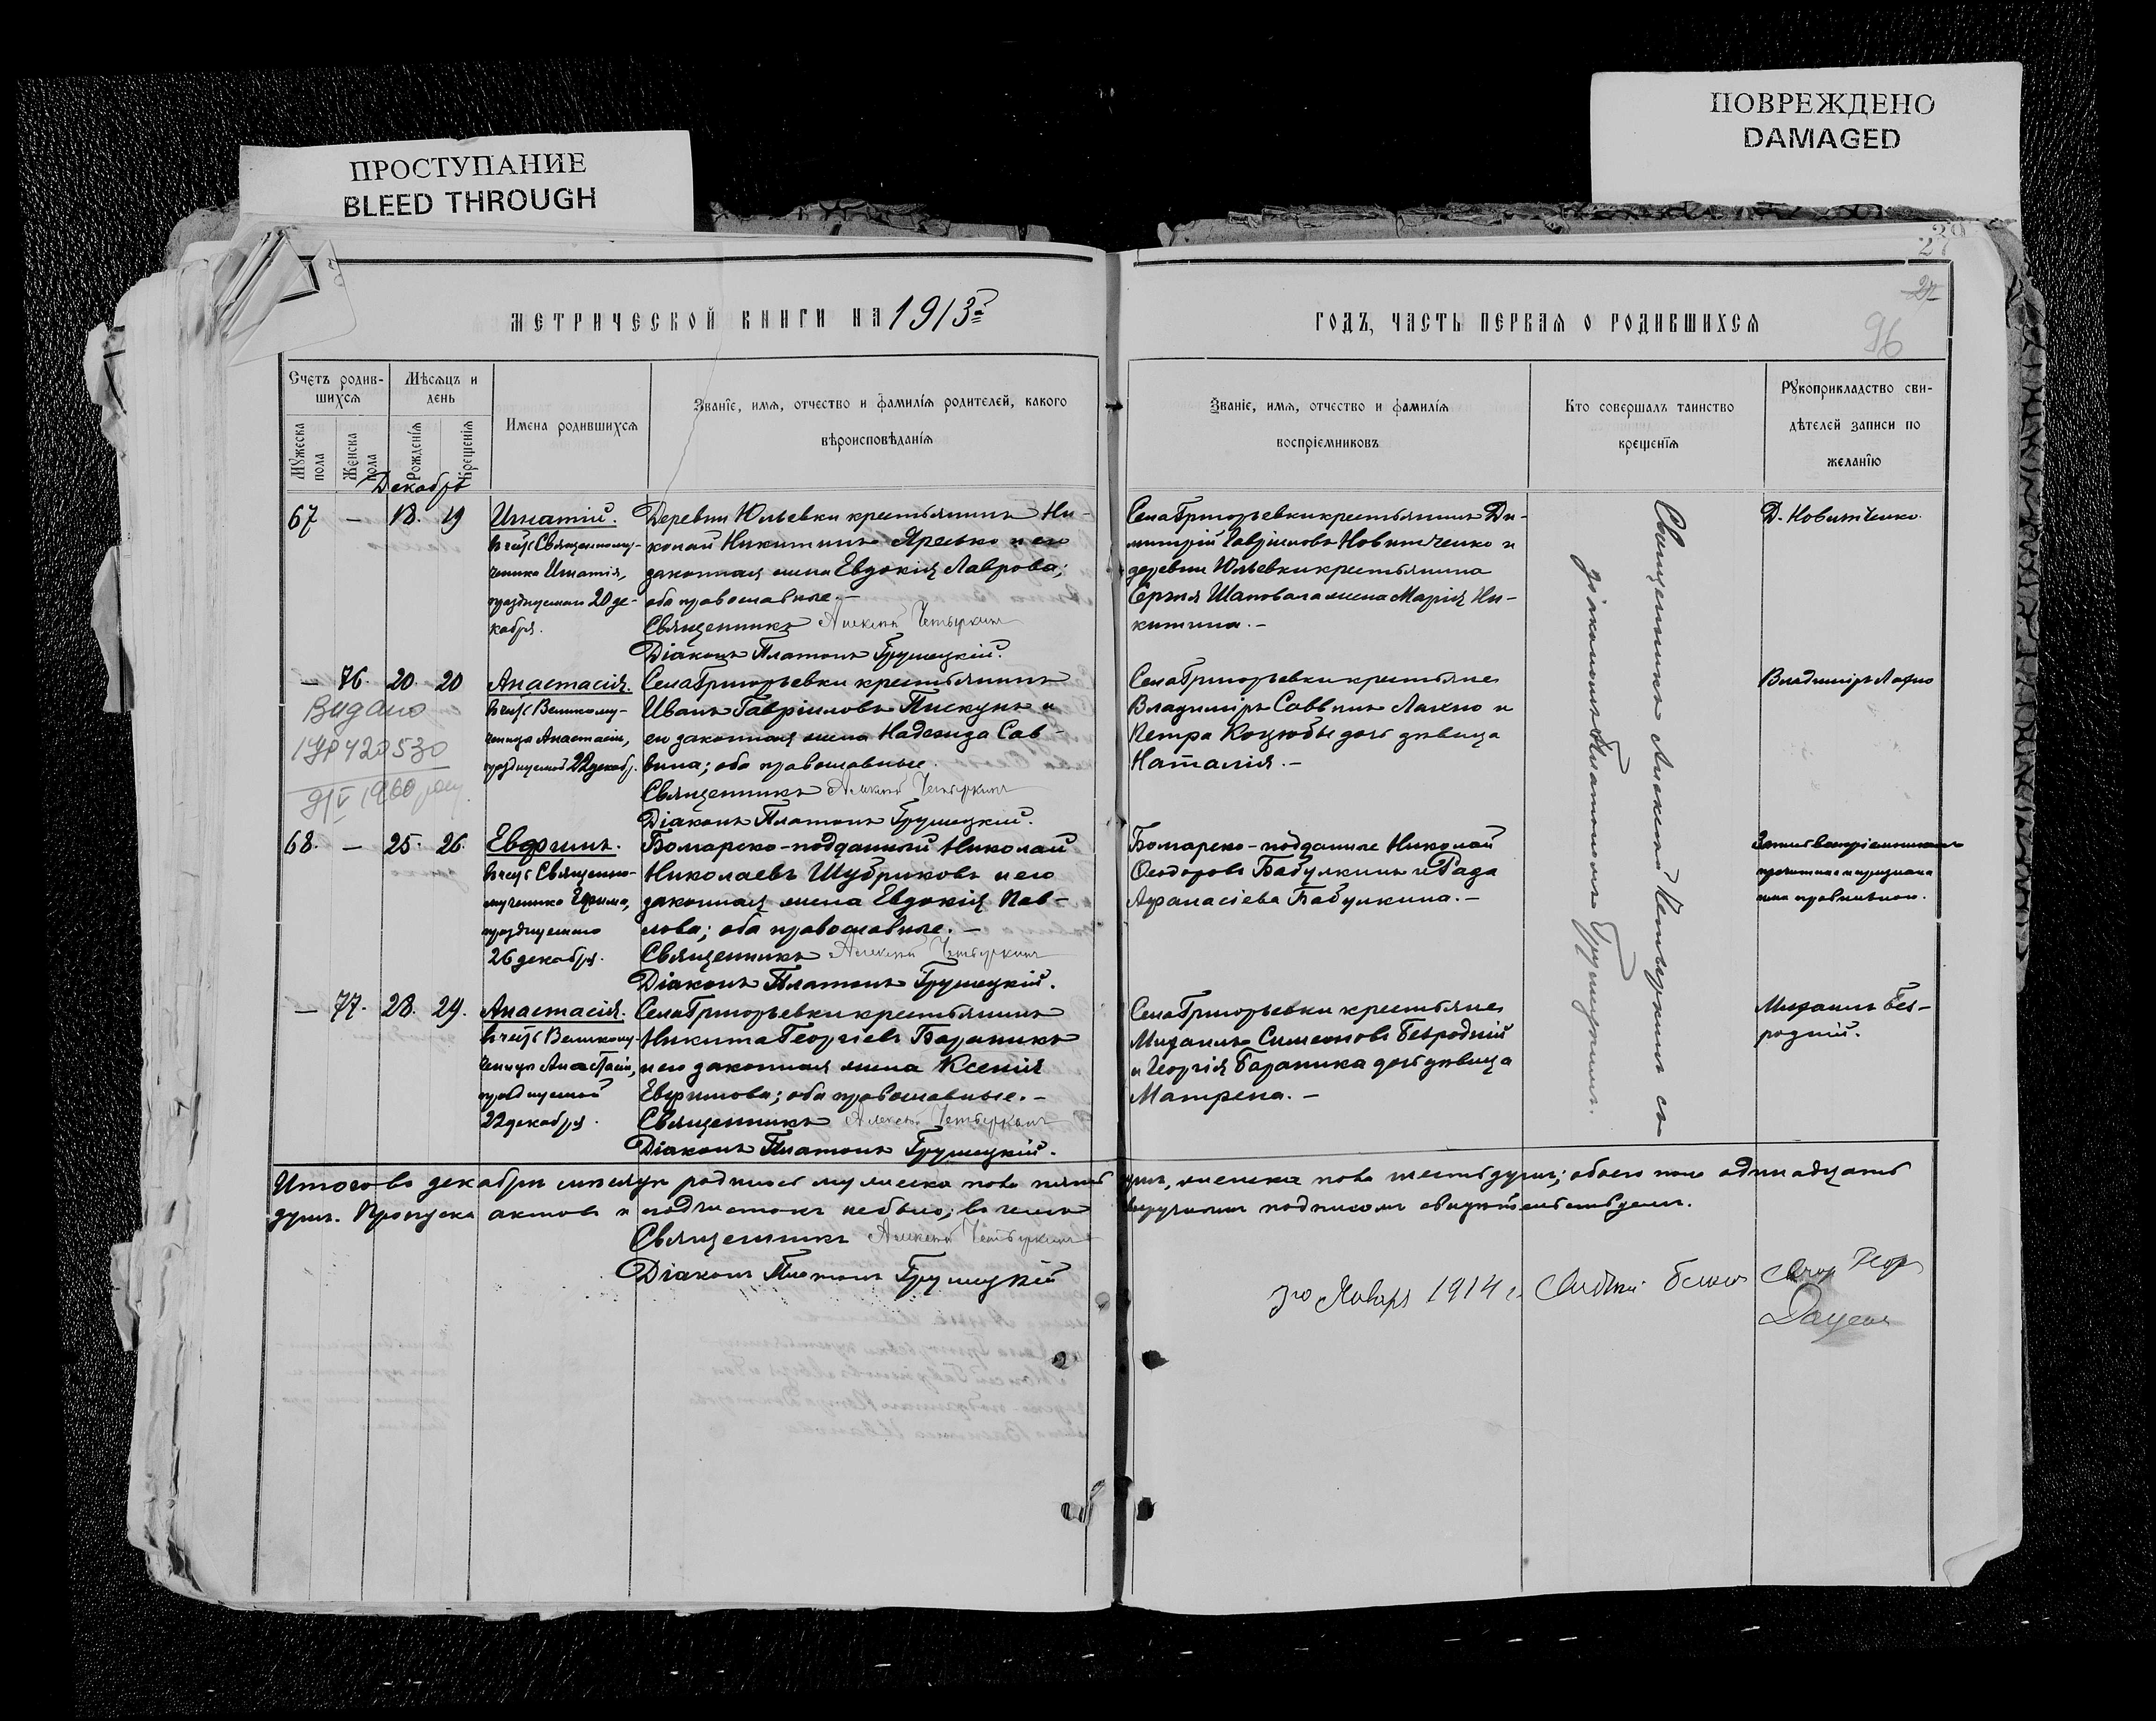 ПРОСТУПАНИЕ
BLEED THROUGH
ПОВРЕЖДЕНО
DAMAGED
27
96
МЕТРИЧЕСКОЙ КНИГИ НА 1913й
ГОДЪ, ЧАСТЬ ПЕРВАЯ О РОДИВШИХСЯ
Счетъ родив-
шихся
Мѣсяцъ и
день
Мужеска
пола
Женска
пола
Рожденія
Крещенія
Имена родившихся
Званіе, имя, отчество и фамилія родителей, какого
вѣроисповѣданія
Званіе, имя, отчество и фамилія
воспріемниковъ
Кто совершалъ таинство
крещенія
Рукоприкладство сви-
дѣтелей записи по
желанію
Декабрь
67 — 18. 19
Игнатій.
въ честь Священному-
ченика Игнатія,
празднуемаго 20 де-
кабря.
Деревни Юльевки крестьянинъ Ни-
колай Никитинъ Яресько и его
законная жена Евдокія Лаврова;
оба православные.—
Священникъ Алексій Четыркинъ
Діаконъ Платонъ Грушецкій.
Села Григорьевки крестьянинъ Ди-
митрій Гавріиловъ Новитченко и
деревни Юльевки крестьянина
Сергія Шаповала жена Марія Ни-
китина.—
Д. Новитченко
— 76. 20. 20
Анастасія.
въ честь Великому-
ченицы Анастасіи,
празднуемой 22 декабр.
Видано
ІЯР 420530
9/V 1960 року
Села Григорьевки крестьянинъ
Иванъ Гавріиловъ Пискунъ и
его законная жена Надежда Сав-
вина; оба православные.
Священникъ Алексій Четыркинъ
Діаконъ Платонъ Грушецкій.
Села Григорьевки крестьяне
Владиміръ Саввинъ Лахно и
Петра Коцюбы дочь дѣвица
Наталія.—
Владиміръ Лахно
68. — 25. 26.
Евфимъ.
въ честь Священно-
мученика Ефима,
празднуемаго
26 декабря.
Болгарско-подданный Николай
Николаевъ Шубриковъ и его
законная жена Евдокія Пав-
лова; оба православные.—
Священникъ Алексій Четыркинъ
Діаконъ Платонъ Грушецкій.
Болгарско-подданные Николай
Ѳеодоровъ Бабулкинъ и Рада
Афанасіева Бабулкина.—
— 77. 28. 29.
Анастасія.
въ честь Великому-
ченицы Анастасіи,
празднуемой
22 декабря.
Села Григорьевки крестьянинъ
Никита Георгіевъ Бараникъ
и его законная жена Ксенія
Евфимова; оба православные.—
Священникъ Алексій Четыркинъ
Діаконъ Платонъ Грушецкій.
Села Григорьевки крестьяне
Михаилъ Симеоновъ Безродній
и Георгія Бараника дочь дѣвица
Матрена.—
Михаилъ Без-
родній.
Священникъ Алексій Четыркинъ съ
діакономъ Платономъ Грушецкимъ.
Итого въ декабрѣ мѣсяцѣ родилось мужеска пола пять душъ, женска пола шесть душъ; обоего пола одиннадцать
душъ. Пропуска актовъ и подчистокъ не было; въ чемъ подписомъ свидѣтельствуемъ.
Священникъ Алексій Четыркинъ
Діаконъ Платонъ Грушецкій
Января 1914 г.